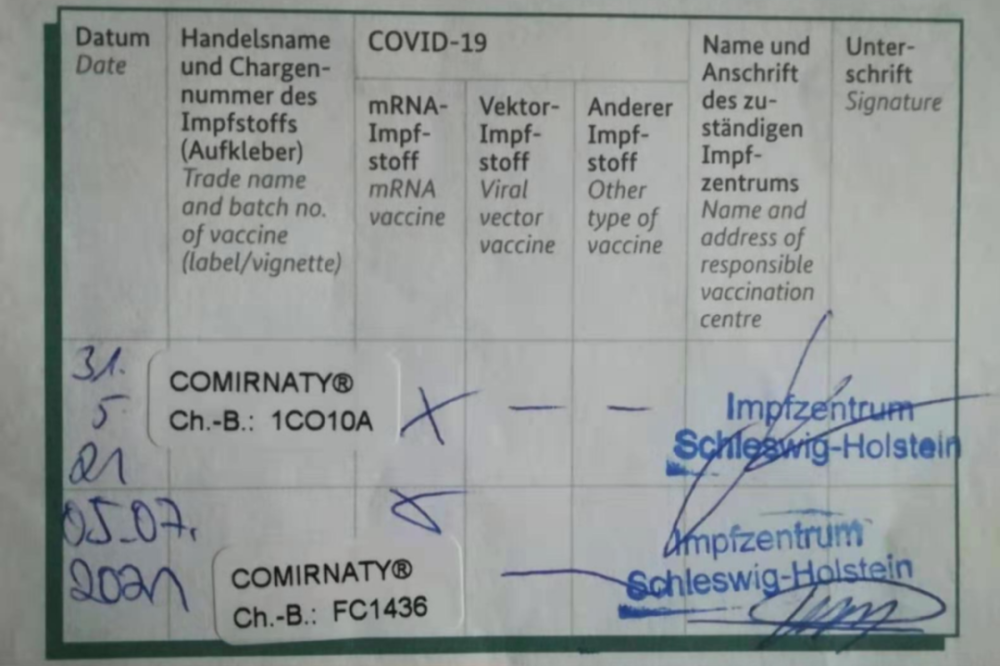 Datum
Date
Handelsname
und Chargen-
nummer des
Impfstoffs
(Aufkleber)
Trade name
and batch no.
of vaccine
(label/vignette)
COVID-19
mRNA-
Impf-
stoff
mRNA
vaccine
Vektor-
Impf-
stoff
Viral
vector
vaccine
Anderer
Impf-
stoff
Other
type of
vaccine
Name und
Anschrift
des zu-
ständigen
Impf-
zentrums
Name and
address of
responsible
vaccination
centre
Unter-
schrift
Signature
31.
5
21
COMIRNATY®
Ch.-B.: 1CO10A
X
— —
Impfzentrum
Schleswig-Holstein
05.07.
2021
COMIRNATY®
Ch.-B.: FC1436
Impfzentrum
Schleswig-Holstein